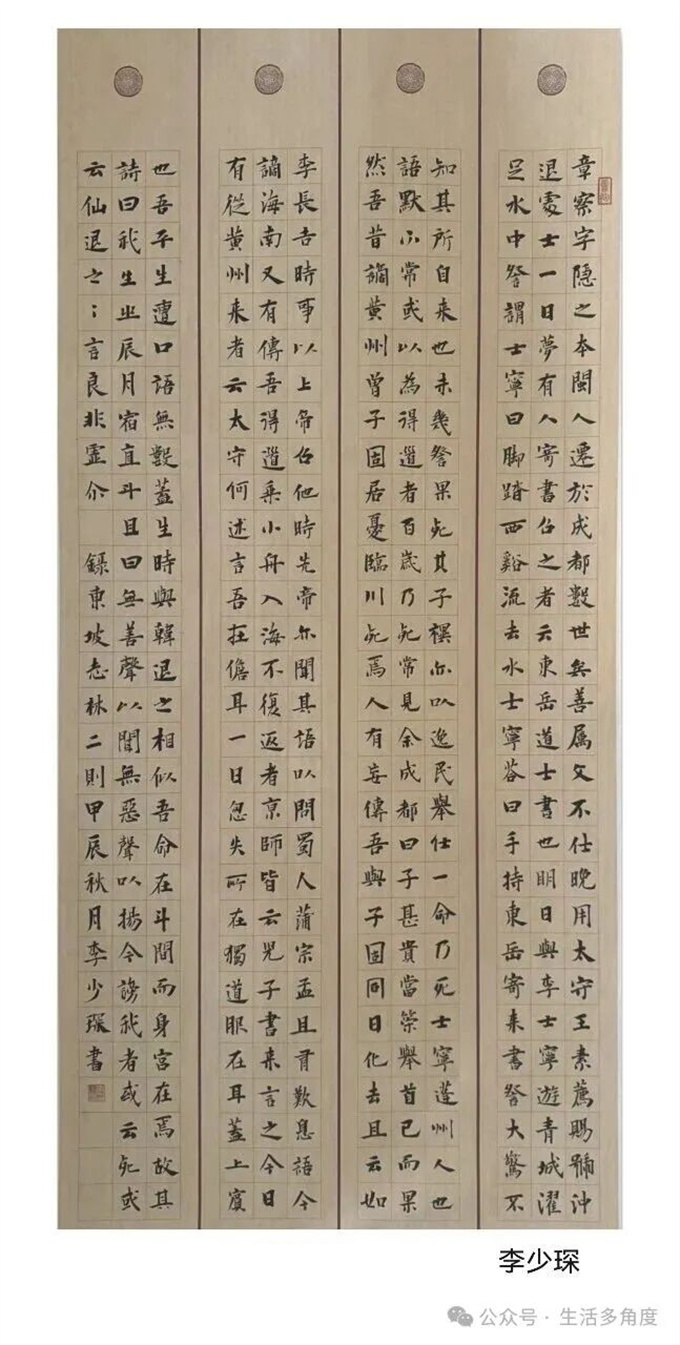 章察字隐之本閩人遷於成都數世矣善属文不仕晚用太守王素薦賜號沖
退處士一日夢有人寄書召之者云東岳道士書也明日與李士寧遊青城濯
足水中詧謂士寧曰脚踏西谿流去水士寧荅曰手持東岳寄来書詧大驚不
知其所自来也未幾詧果死其子禩亦以逸民舉仕一命乃死士寧蓬州人也
語默不常或以為得道者百歲乃死常見余成都曰子甚貴當策舉首已而果
然吾昔謫黄州曾子固居憂臨川死焉人有妄傳吾與子固同日化去且云如
李長吉時事以上帝召他時先帝亦聞其語以問蜀人蒲宗孟且有歎息語今
謫海南又有傳吾得道乗小舟入海不復返者京師皆云兒子書来言之今日
有從黄州来者云太守何述言吾在儋耳一日忽失所在獨道服在耳蓋上賓
也吾平生遭口語無數蓋生時與韓退之相似吾命在斗間而身宮在焉故其
詩曰我生之辰月宿直斗且曰無善聲以聞無惡聲以揚今謗我者或云死或
云仙退之之言良非虚尒 錄東坡志林二則甲辰秋月李少琛書
李少琛
公众号·生活多角度